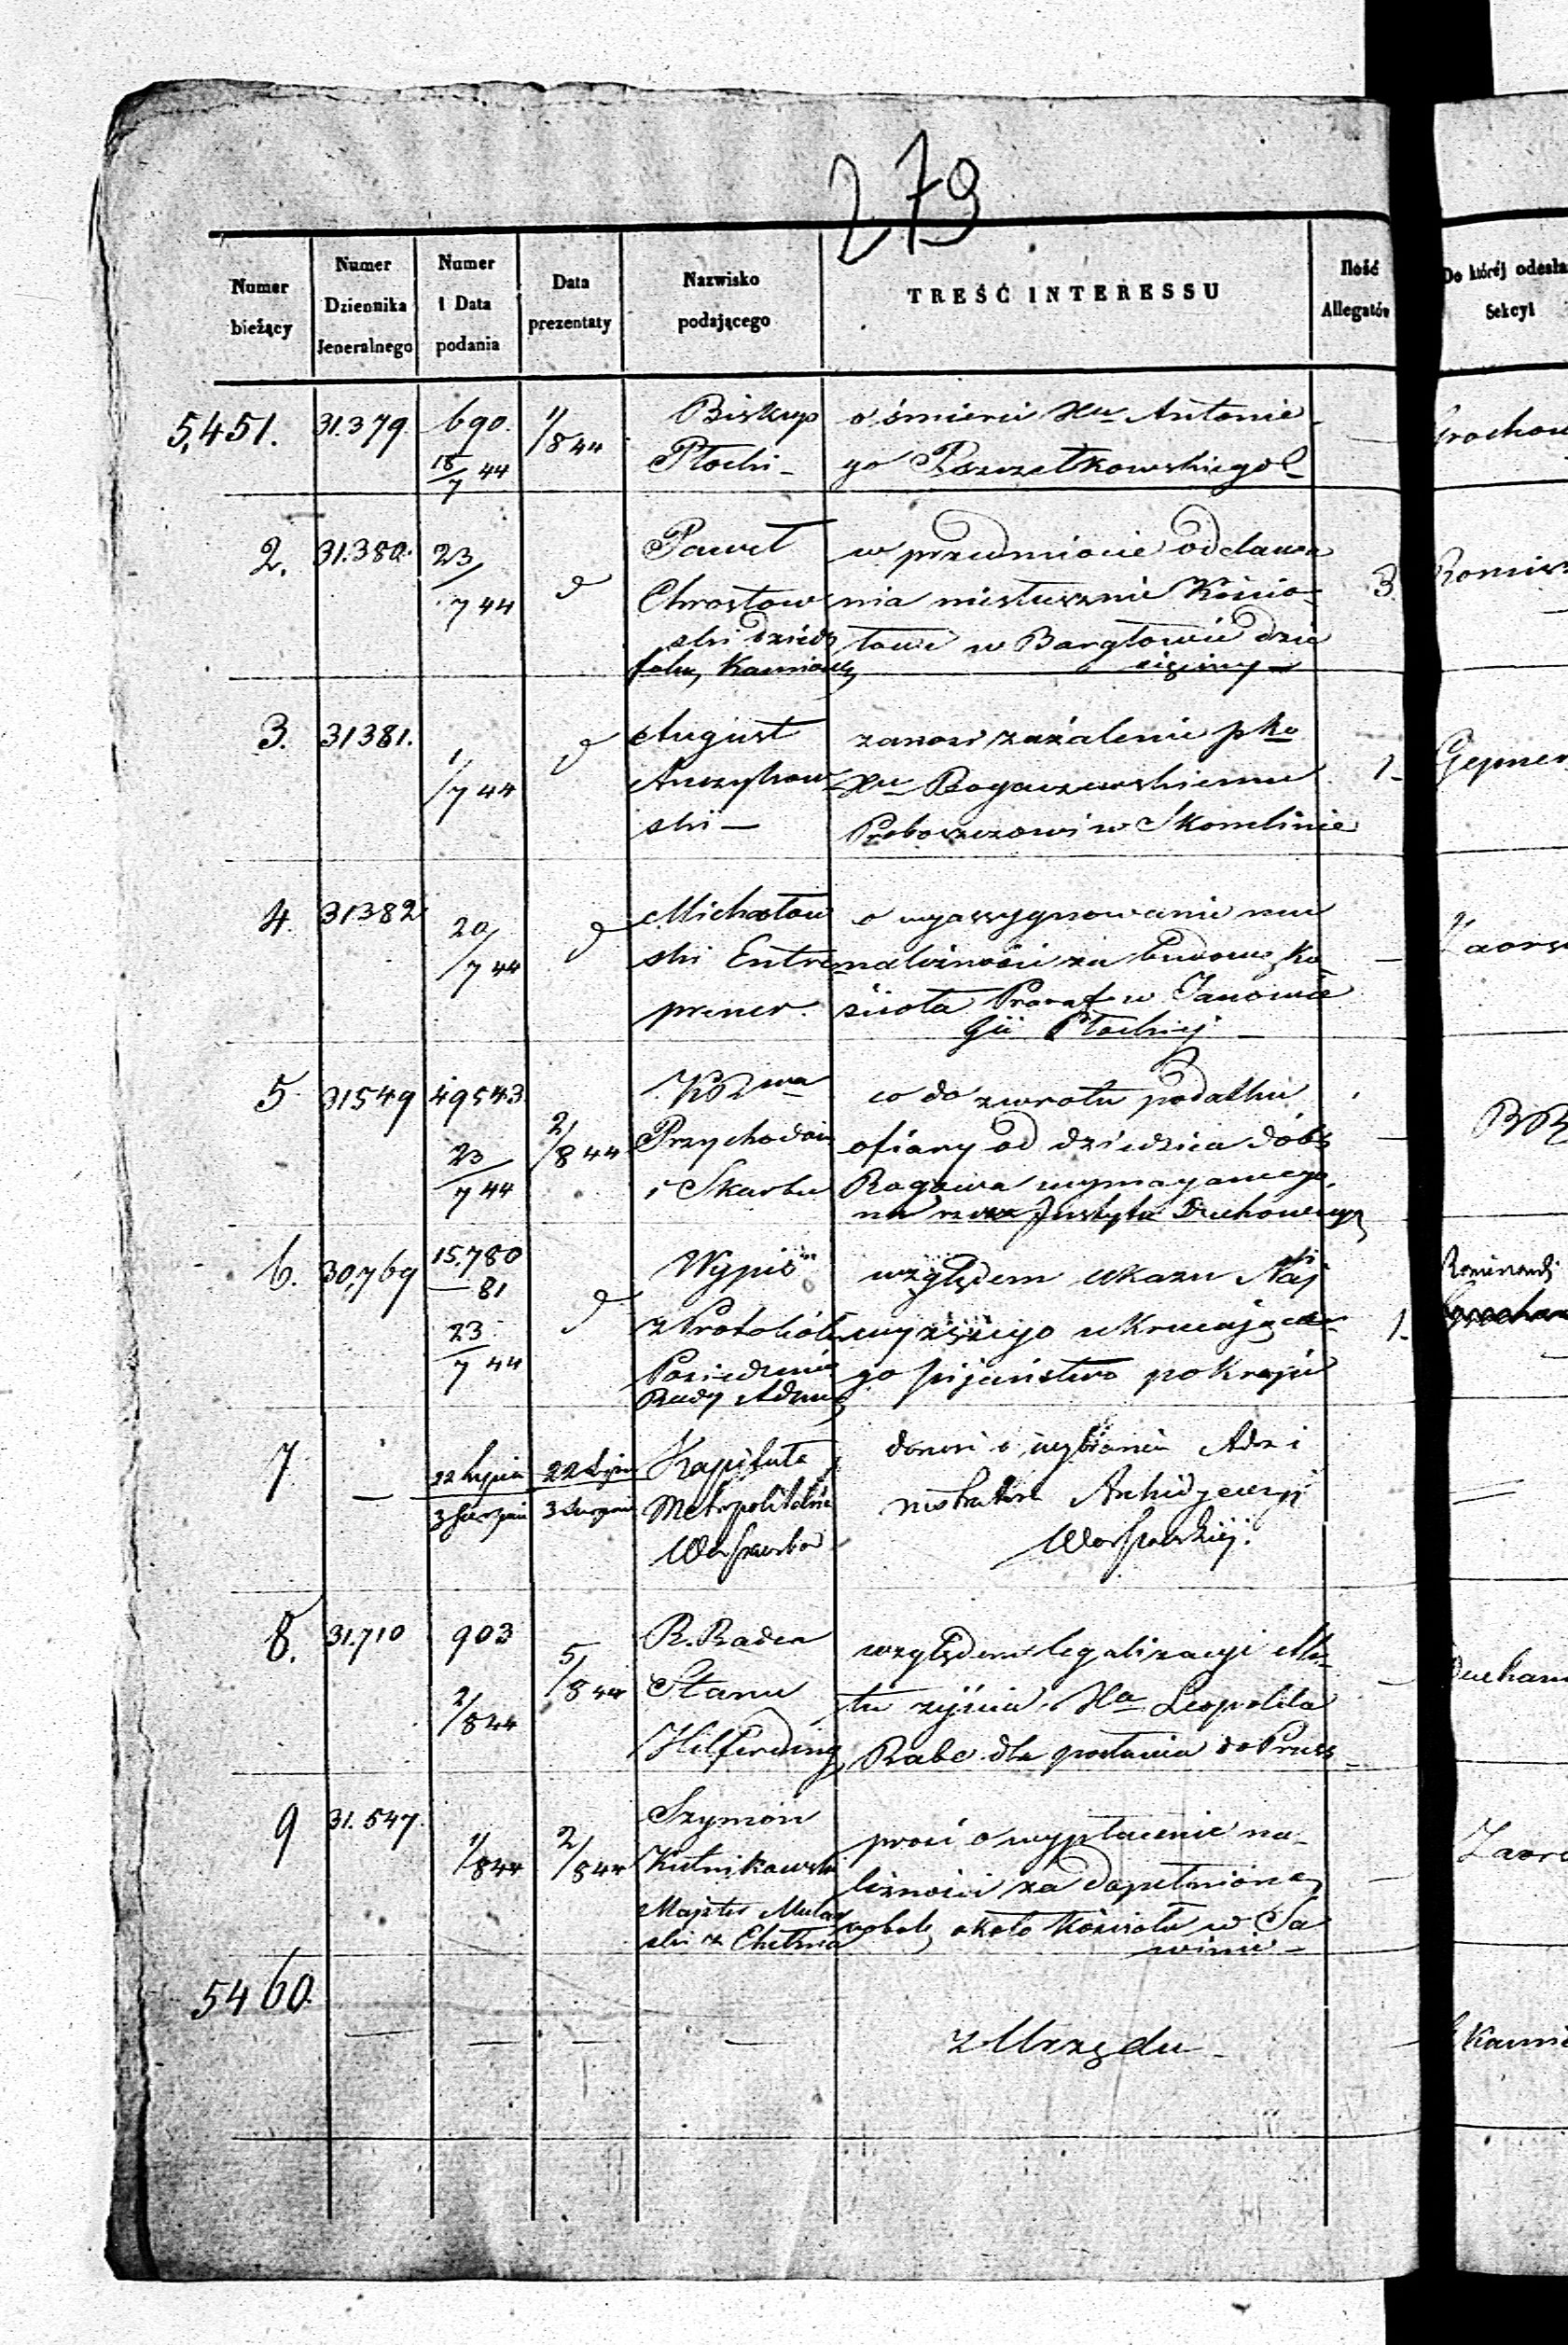 279
Numer bieżący
Numer Dziennika Jeneralnego
Numer i Data podania
Data prezentaty
Nazwisko podającego
TREŚĆ INTERESSU
Ilość Allegatów
Do któréj odesła
Sekcyi
5,451. 31.379. 690. 18/7 44 1/8 44
Biskup
Płocki -
o śmierci Xa Antonie
go Pszczółkowskiego
2. 31.380. 23/7 44 d
Paweł
Chrostow
ski dzied
w przedmiocie oddawa
nia niesłusznie Kościo-
łowi w Bargłowie dzie
sięciny -
3.
3. 31381. 1/7 44 d
August
ski -
zanosi zażalenie pko
Xu
Proboszczowi w Skomlinie
1-
Gepner
4. 31382 20/7 44 d
Michałow
ski Entre
prener.
o wyassygnowanie mu
należności za budowę ko
ścioła Paraf w Janowie
Gii Płockiej -
5 31549 49543. 23/7 44 2/8 44
Przychodów
i Skarbu
co do zwrotu podatku
ofiary od dziedzica dóbr
Rogowa wymaganego
6. 30,769 15.780 - 81 23/7 44 d
Wypis
z Protokółu
Posiedzenia
Rady Adm
względem ukazu Naj
wyższego
go pijaństwo po kraju
1-
7 - 22 Lipca 3 Sierpnia 22 Lipca 3 Sierpnia
Kapituła
Metropolitalna
Warszawska
donosi o wybraniu Admi
nistratora Archidyecezyi
Warszawskiéj.
8. 31.710 903 2/8 44 5/8 44
R. Radca
Stanu
Hilferding
względem legalizacyi Me
tu życia Xa Leopolda
Rabe dla posłania do Pruss -
9 31.547. 1/8 44 2/8 44
Szymon
Kutnikowski
Majster Mular
ski z Chełma
prosi o wypłacenie na-
leżności za dopełnione
roboty około Kościoła w Sa
winie -
5460. - - - -
z Urzędu -